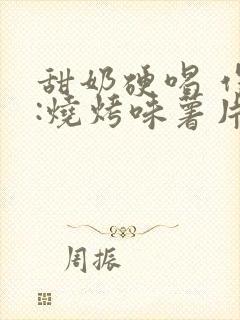 甜奶硬唱
:燒烤味薯片
周振